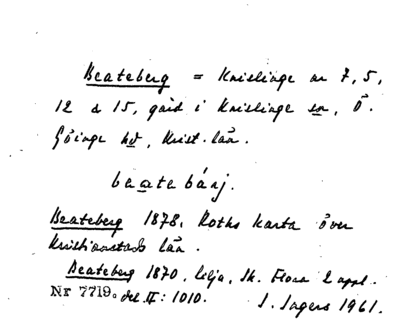 Beateberg = Knislinge nr 7, 5,
12 & 15, gård i Knislinge sn, Ö.
Göinge hd, Krist. län.
beatebárj.
Beateberg 1878, Roths karta över
Kristianstads län.
Beateberg 1870, Lilja, Sk. Flora 2 uppl.
Nr 7719. del II: 1010. I. Ingers 1961.